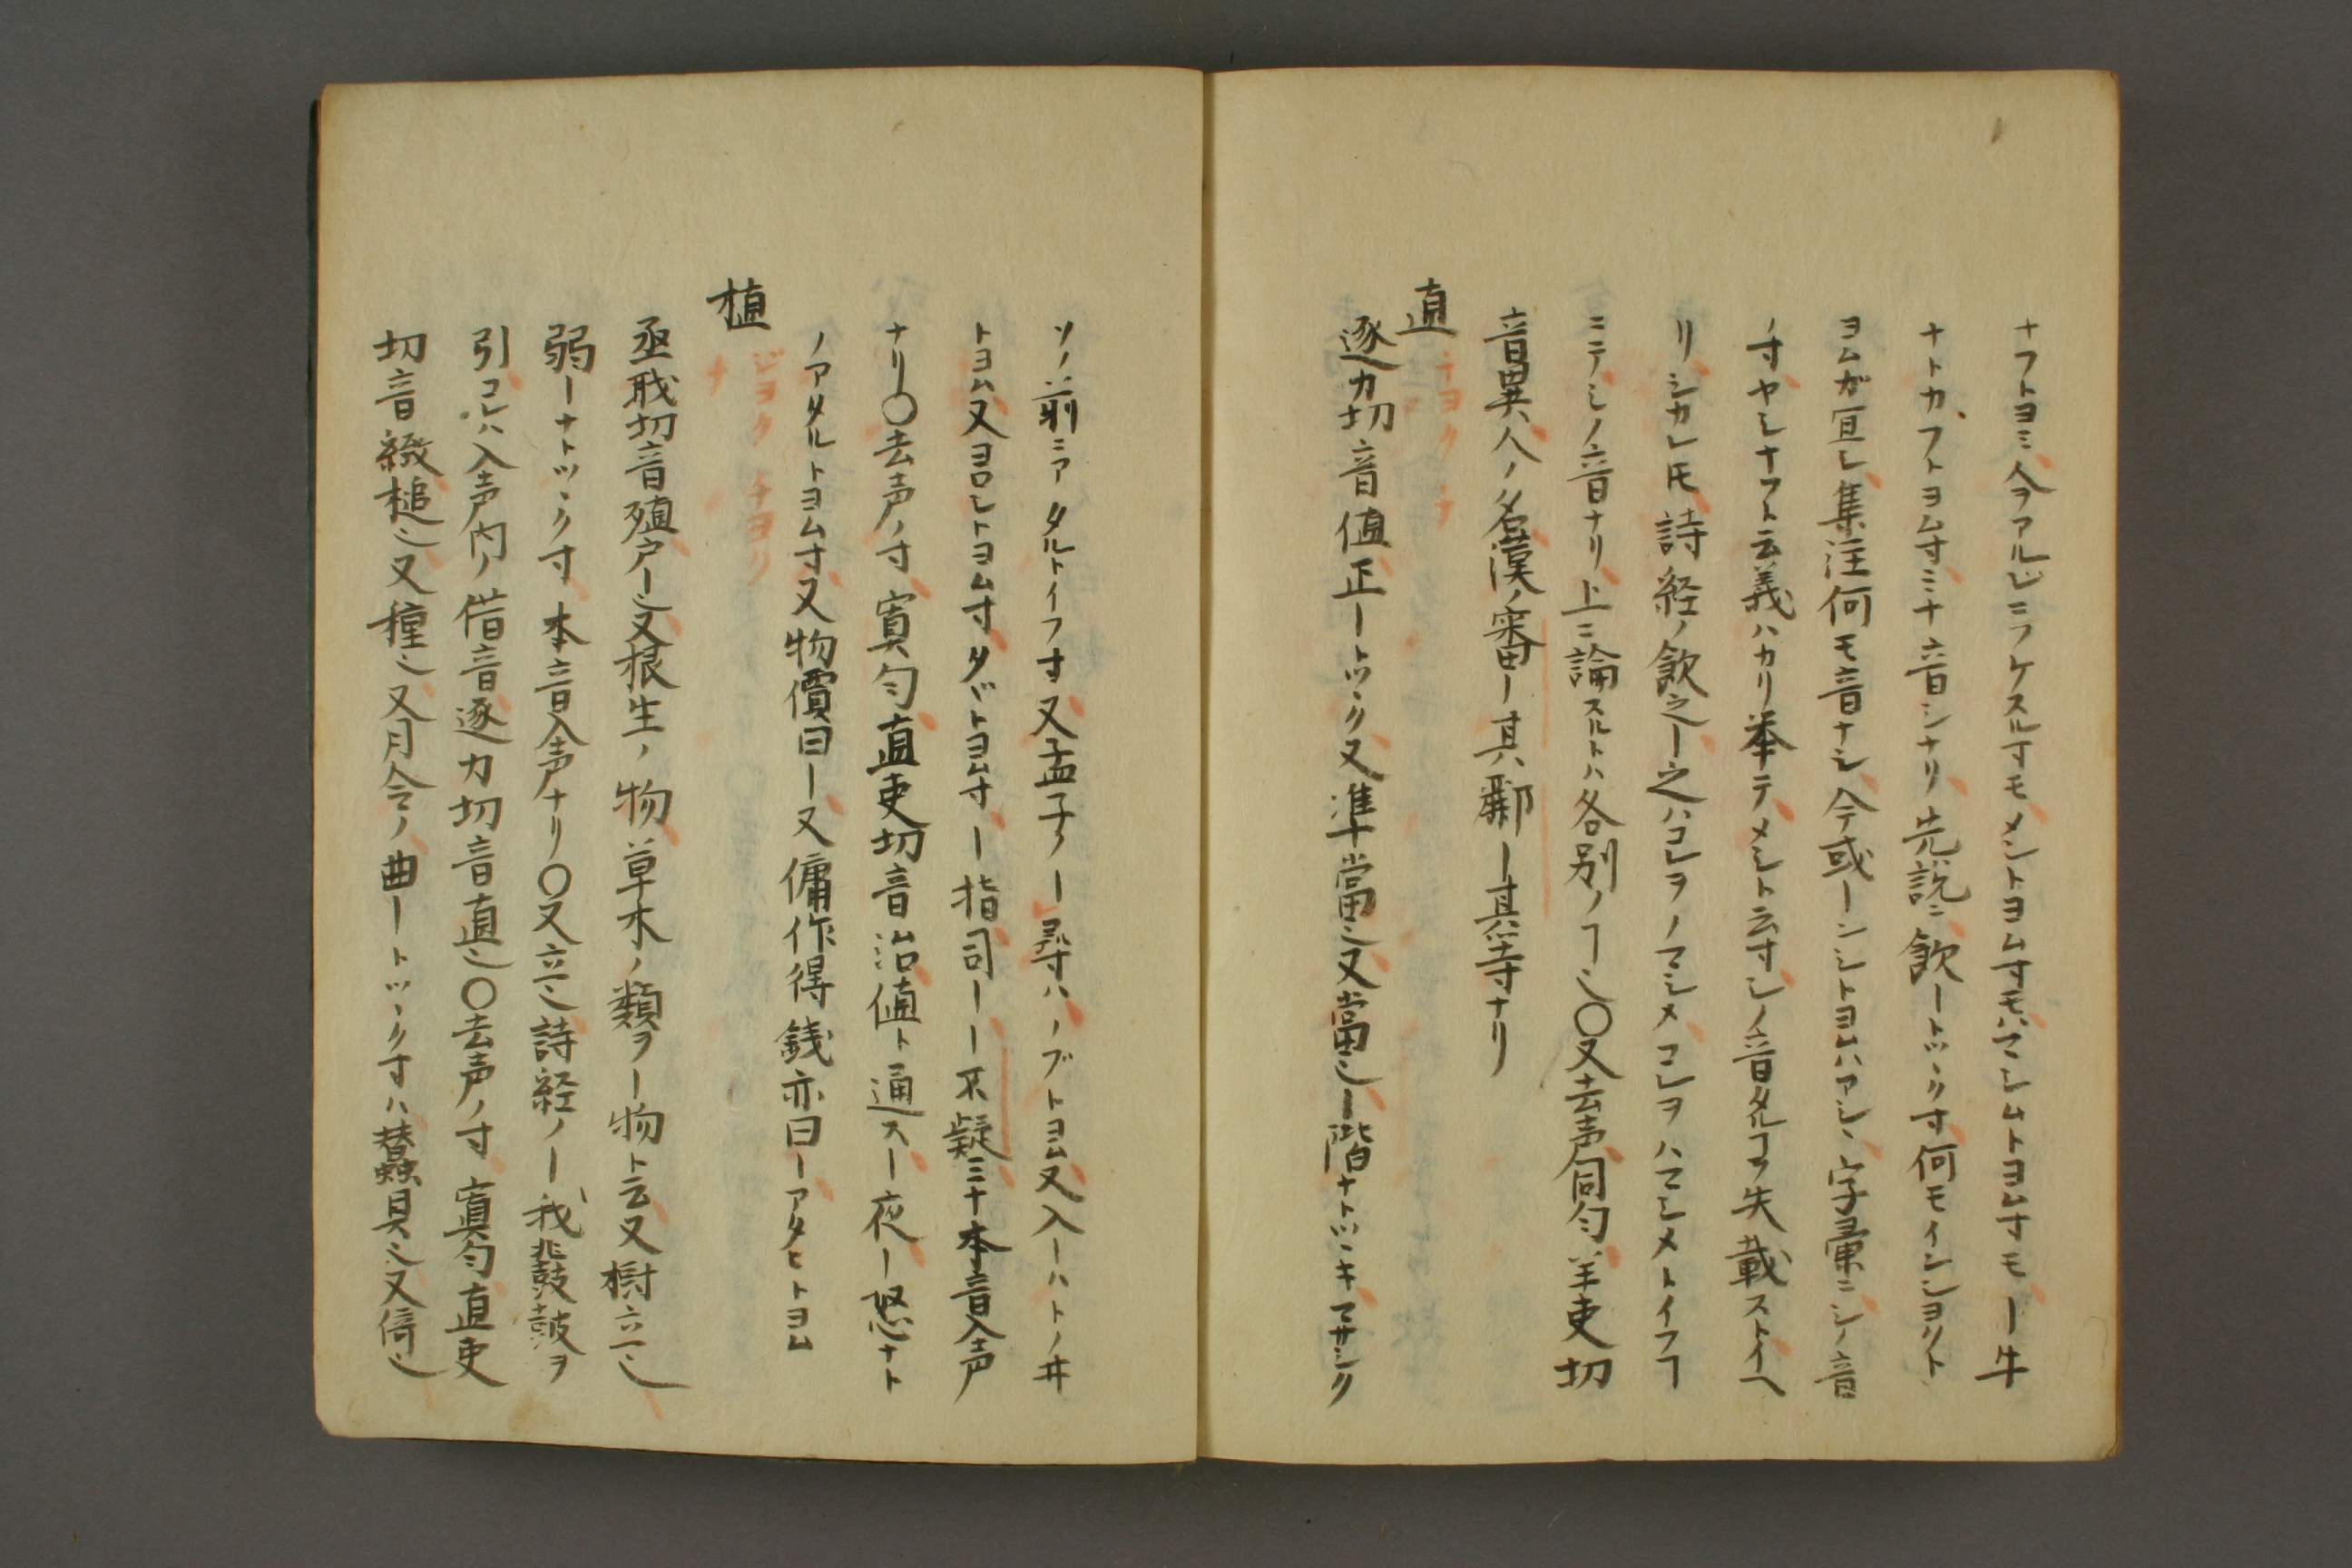 ナフトヨミ人ヲアルジニフケスル寸モメシトヨム寸モハマシムトヨム寸モ｜牛
ナトカフトヨム寸ミナ音シナリ先説ニ飲｜トツヽク寸何モインシヨクト
ヨムガ宜シ集注何モ音ナシ今或｜ンシトヨムハアシヽ字彙ニシノ音
ノ寸ヤシナフト云義ハカリ挙テメシト云寸シノ音タルヿヲ失載ストイヘ
リシカレ𪜈詩経ノ飲之｜之ハコレヲノマシメコレヲハマシメトイフヿ
ニテシノ音ナリ上ニ論スルトハ各別ノヿ也〇又去声同勻羊吏切
音異人ノ名漢ノ審｜其酈｜其等ナリ
直
チヨク チ
逐力切音値正｜トツヽク又準當也又當也｜階ナトツヽキマサシク
ソノ前ニアタルトイフ寸又孟子ノ｜尋ハノブトヨム又入｜ハトノ井
トヨム又ヨロシトヨム寸タヾトヨム寸｜指司｜｜不疑ミナ本音入声
ナリ〇去声ノ寸寘勻直吏切音治値ト通ス｜夜｜怒ナト
ノアタルトヨム寸又物價曰｜又傭作得銭亦曰｜アタヒトヨム
植
ジヨク チヨク
チ
丞職切音殖戸｜也又根生ノ物草木ノ類ヲ｜物ト云又樹立也
弱｜ナトツヽク寸本音入声ナリ〇又立也詩経ノ｜我鼗鼓ヲ
引コレハ入声内ノ借音逐力切音直也〇去声ノ寸寘勻直吏
切音緻槌也又種也又月令ノ曲｜トツヽク寸ハ蠶具也又倚也